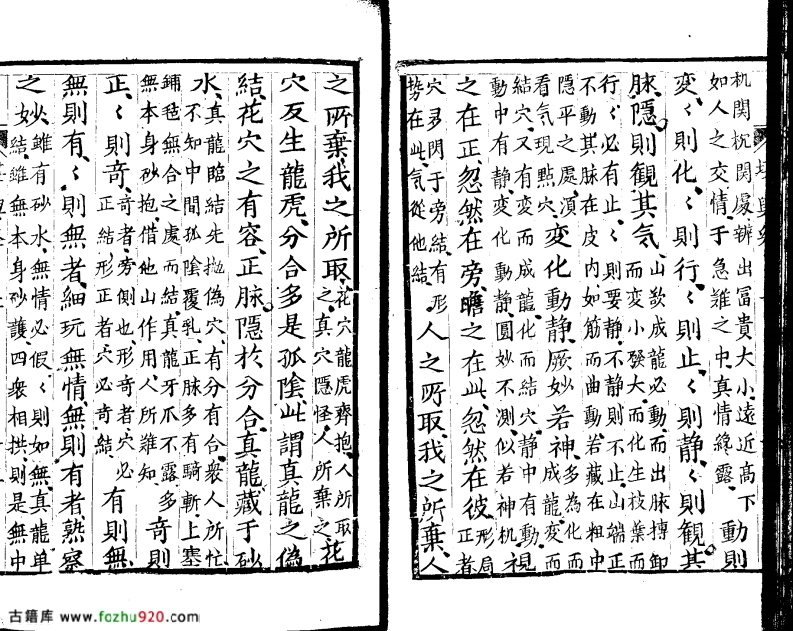 机関杬関處辨出冨貴大小遠近高下
如人之交情于急難之中真情終露
動則
変〻則化〻則行〻則止〻則静〻則観其
脉隠則観其气
山欲成龍必動而出脉摶卸
而変小發大而化生枝葉而
行〻必有止〻則要静不静則不止山端正
不動其脉在皮内如筋而曲動若藏在粗中
隠平之處湏
看气現點穴
変化動静厥妙若神
多為化而
成龍変而
結穴又有変而成龍化而結穴静中有動
動中有静変化動静圓妙不測似若神机
視
之在正忽然在旁瞻之在此忽然在彼
形局
正者
穴多閃于旁結有形
势在此气從他結
人之所取我之所棄人
之所棄我之所取
花穴龍虎齊抱人所取
之真穴隠怪人所棄之
花
穴反生龍虎分合多是孤陰此謂真龍之偽
結花穴之有容正脉隠於分合真龍藏于砂
水
真龍臨結先拋偽穴有分有合衆人所忙
不知中間孤陰覆乳正脉多有騎斬上塞
鋪毡無合之處而結真龍牙爪不露多
無本身砂抱借他山作用人所難知
竒則
正〻則竒
竒者旁側也形竒者穴必
正結形正者穴必竒結
有則無
無則有〻則無者細玩無情無則有者熟察
之妙
雖有砂水無情必假〻則如無真龍单
結雖無本身砂護四衆相拱則是無中
古籍库 www.fozhu920.com